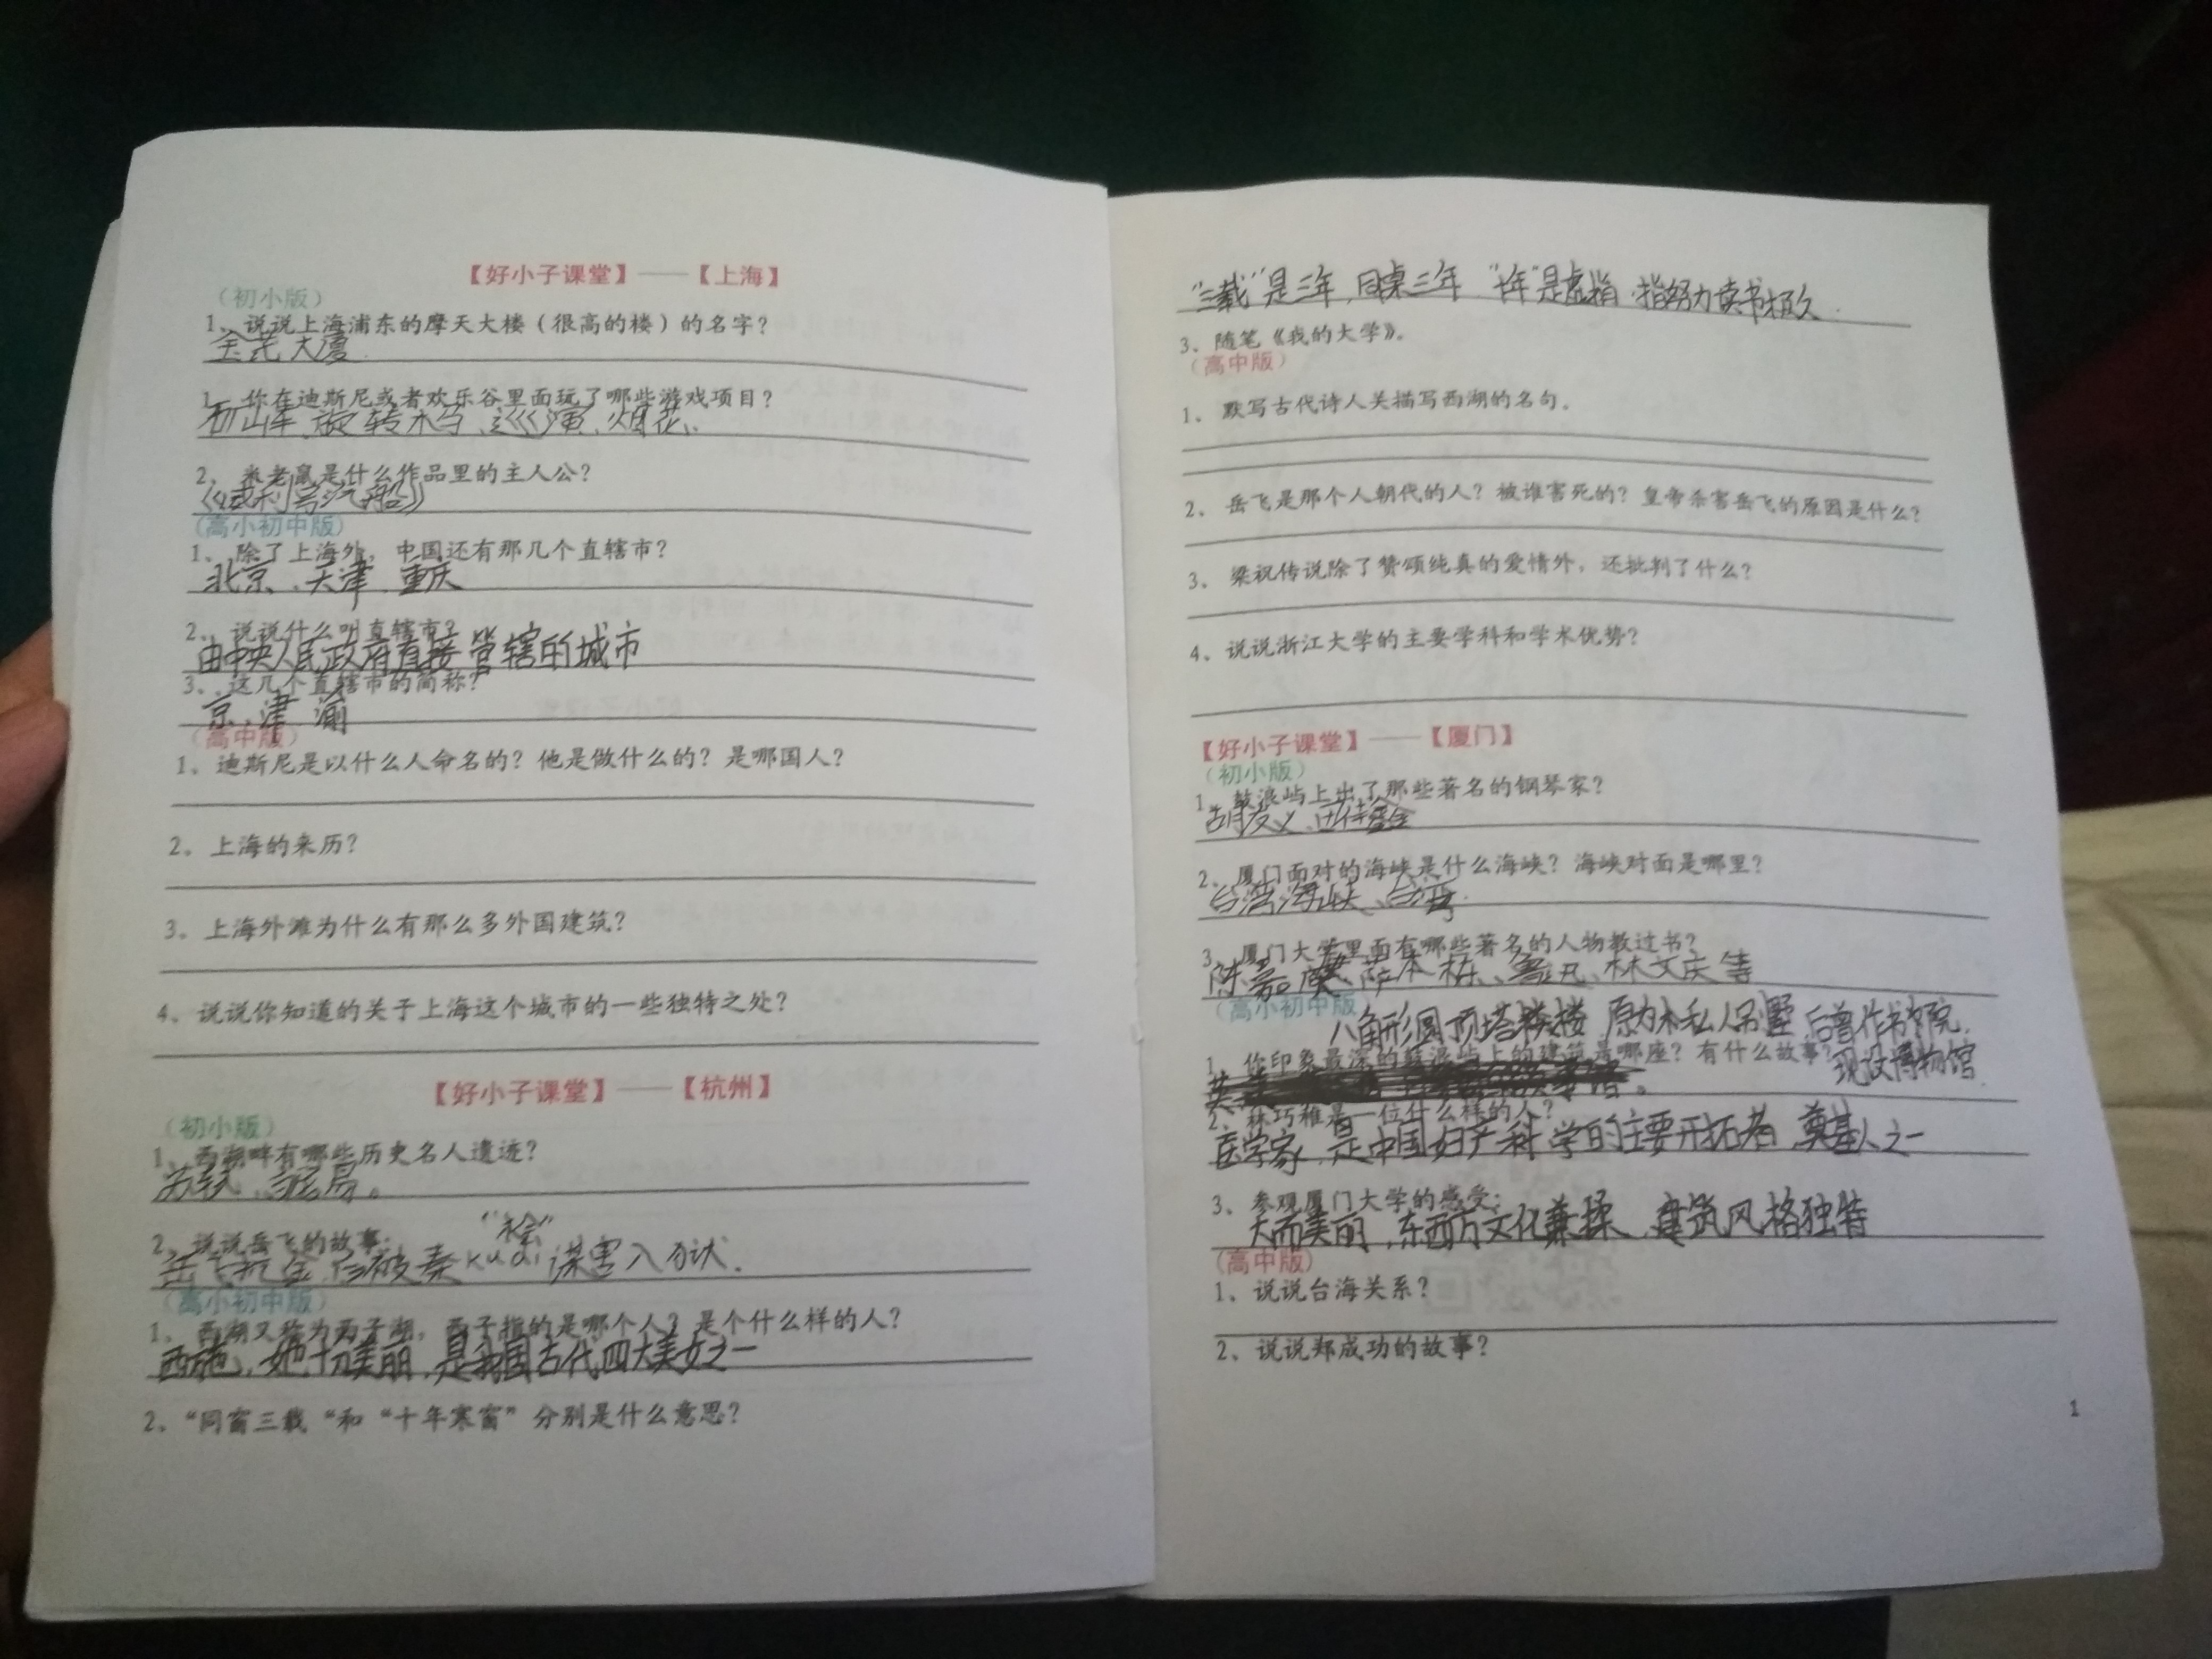 【好小子课堂】——【上海】
（初小版）
1、说说上海浦东的摩天大楼（很高的楼）的名字？
金茂大厦.
1、你在迪斯尼或者欢乐谷里面玩了哪些游戏项目？
山车、旋转木马、巡演、烟花.
2、米老鼠是什么作品里的主人公？
《威利号汽船》
（高小初中版）
1、除了上海外，中国还有那几个直辖市？
北京、天津、重庆
2、说说什么叫直辖市？
由中央人民政府直接管辖的城市
3、这几个直辖市的简称？
京、津、渝
（高中版）
1、迪斯尼是以什么人命名的？他是做什么的？是哪国人？
2、上海的来历？
3、上海外滩为什么有那么多外国建筑？
4、说说你知道的关于上海这个城市的一些独特之处？
【好小子课堂】——【杭州】
（初小版）
1、西湖畔有哪些历史名人遗迹？
苏轼、居易。
2、说说岳飞的故事：
"桧"
岳飞抗金，被秦kuai谋害入狱.
（高小初中版）
1、西湖又称为西子湖，西子指的是哪个人？是个什么样的人？
西施，她十分美丽，是我国古代四大美女之一
2、“同窗三载“和“十年寒窗”分别是什么意思？
"三载"是三年，同桌三年."十年"是虚指，指努力读书极久.
3、随笔《我的大学》。
（高中版）
1、默写古代诗人关描写西湖的名句。
2、岳飞是那个人朝代的人？被谁害死的？皇帝杀害岳飞的原因是什么？
3、梁祝传说除了赞颂纯真的爱情外，还批判了什么？
4、说说浙江大学的主要学科和学术优势？
【好小子课堂】——【厦门】
（初小版）
1、鼓浪屿上出了那些著名的钢琴家？
胡友义、
2、厦门面对的海峡是什么海峡？海峡对面是哪里？
台湾海峡、台湾.
3、厦门大学里面有哪些著名的人物教过书？
陈嘉庚、萨本栋、鲁迅、林文庆等
（高小初中版
八角形圆顶塔楼 原为私人别墅，后曾作书院，
1、你印象最深的鼓浪屿上的建筑是哪座？有什么故事？
现设博物馆.
2、林巧稚是一位什么样的人？
医学家，是中国妇产科学的主要开拓者、奠基人之一
3、参观厦门大学的感受：
大而美丽，东西方文化兼揉、建筑风格独特
（高中版）
1、说说台海关系？
2、说说郑成功的故事？
1